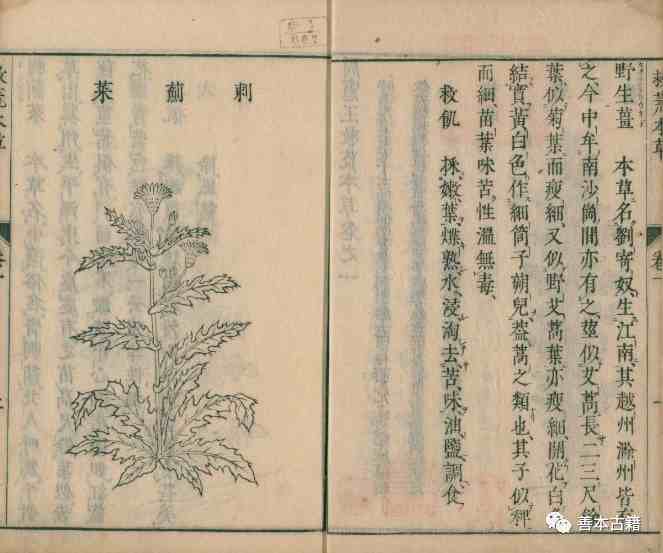 救荒本草 卷一
野生薑 本草名劉寄奴生江南其越州滁州皆有
之今中牟南沙崗間亦有之莖似艾蒿長二三尺餘
葉似菊葉而瘦細又似野艾蒿葉亦瘦細開花白
結實黃白色作細筒子蒴兒蓋蒿之類也其子似稗
而細苗葉味苦性溫無毒
救飢 採嫩葉煠熟水浸淘去苦味油鹽調食
刺薊菜
救荒本草 卷一
善本古籍